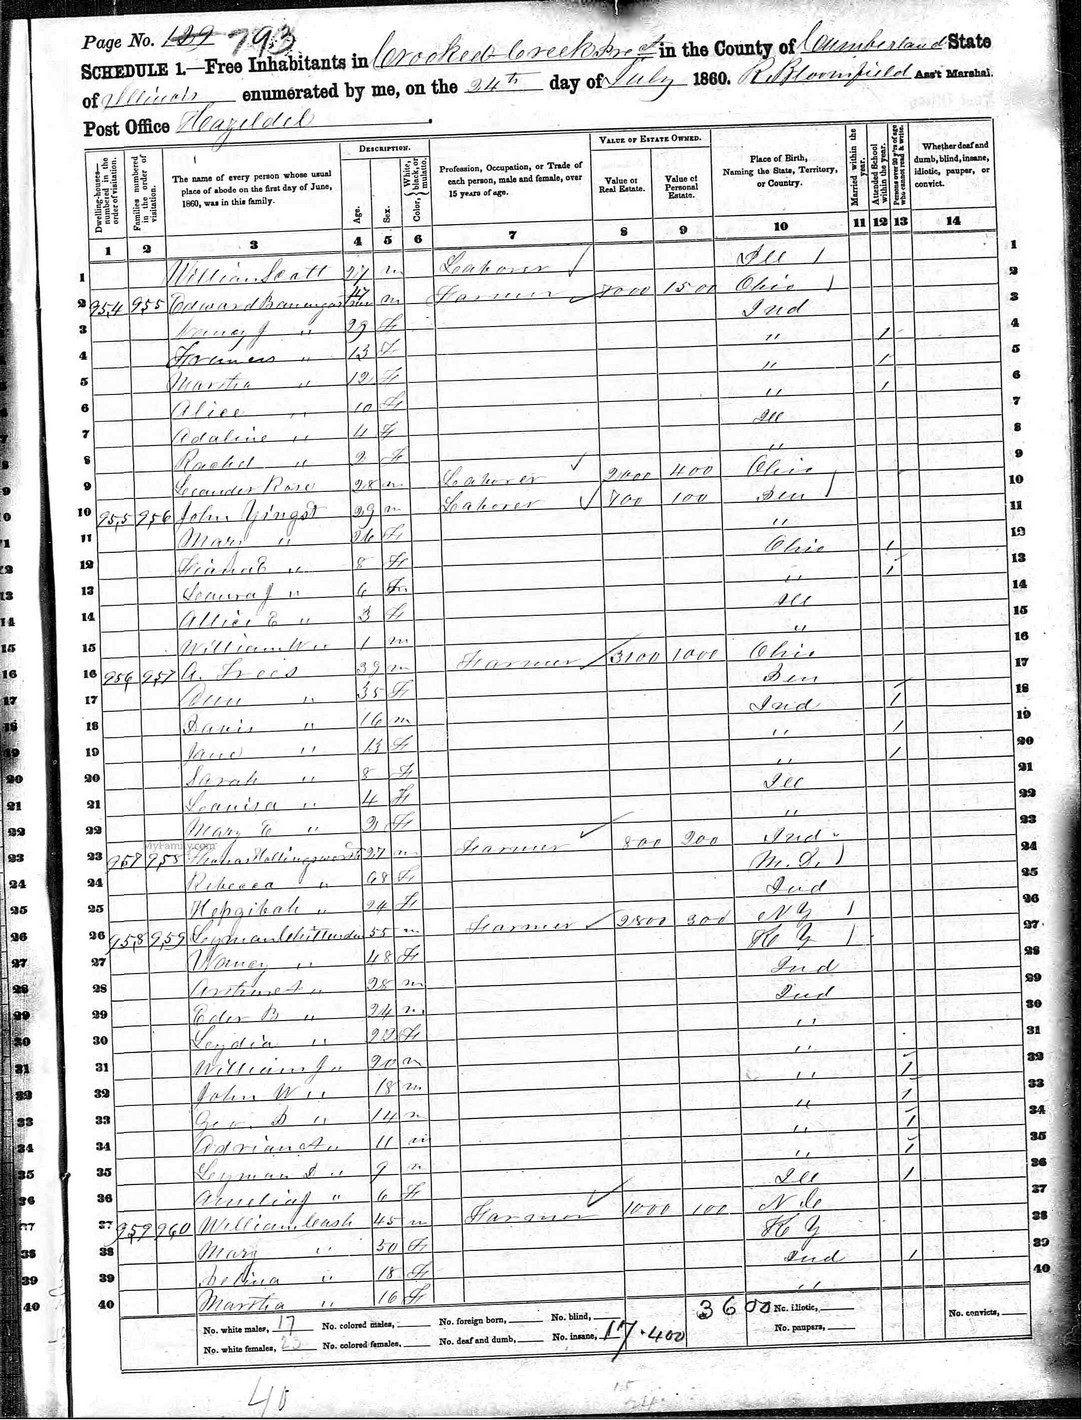 Page No. 129 793
SCHEDULE 1.—Free Inhabitants in Crooked Creek Prect in the County of Cumberland State
of Illinois enumerated by me, on the 24th day of July 1860. R. Bloomfield Ass't Marshal.
Post Office Hazeldel
Dwelling-houses—numbered in the order of visitation.
Families numbered in the order of visitation.
The name of every person whose usual place of abode on the first day of June, 1860, was in this family.
DESCRIPTION.
Age.
Sex.
Color, White, black, or mulatto.
Profession, Occupation, or Trade of each person, male and female, over 15 years of age.
VALUE OF ESTATE OWNED.
Value of Real Estate.
Value of Personal Estate.
Place of Birth, Naming the State, Territory, or Country.
Married within the year.
Attended School within the year.
Persons over 20 y'rs of age who cannot read & write.
Whether deaf and dumb, blind, insane, idiotic, pauper, or convict.
1 2 3 4 5 6 7 8 9 10 11 12 13 14
1 William Scott 27 m Laborer Ill 1
2 954 955 Edward Baumgartner 47 m Farmer 1500 Ohio 2
3 Nancy J " 29 F Ind 3
4 " 13 F " 1 4
5 Martha " 12 F " 1 5
6 Alice " 10 F " 1 6
7 Adaline " 4 F Ill 7
8 Rachel " 2 F " 8
9 Leander Rose 28 m Laborer 2000 400 Ohio 9
10 955 956 John Yingst 29 m Laborer 100 10
11 Mary " 26 F " 11
12 " 8 F Ohio 1 12
13 Laura J " 6 F " 1 13
14 Allice E " 3 F Ill 14
15 William W " 1 m " 15
16 956 957 A. Frees 39 m Farmer 3100 1000 Ohio 16
17 Ann " 35 F 17
18 " 16 m Ind 1 18
19 Jane " 13 F " 1 19
20 Sarah " 8 F " 1 20
21 Louisa " 4 F Ill 21
22 Mary E " 2 F " 22
23 957 958 Hollingsworth 27 m Farmer 800 200 Ind 23
24 Rebecca " 68 F 24
25 Hepzibah " 24 F Ind 25
26 958 959 Leyman Chittenden 55 m Farmer 2800 300 N Y 26
27 Nancy " 48 F K Y 27
28 " 28 m Ind 28
29 Eder B " 24 m Ind 29
30 Leydia " 22 F " 30
31 William J " 20 m " 31
32 John W " 18 m " 1 32
33 Geo. B " 14 m " 1 33
34 Adrian A " 11 m " 1 34
35 Leyman D " 9 m " 1 35
36 Amelia J " 6 F Ill 1 36
37 959 960 William Cash 45 m Farmer 1000 100 N C 37
38 Mary " 50 F K Y 38
39 " 18 F Ind 1 39
40 Martha " 16 F " 40
No. white males, 17 No. colored males, No. foreign born, No. blind, 3600 No. idiotic, No. convicts,
No. white females, 23 No. colored females, No. deaf and dumb, No. insane, 17.400 No. paupers,
40
MyFamily.com